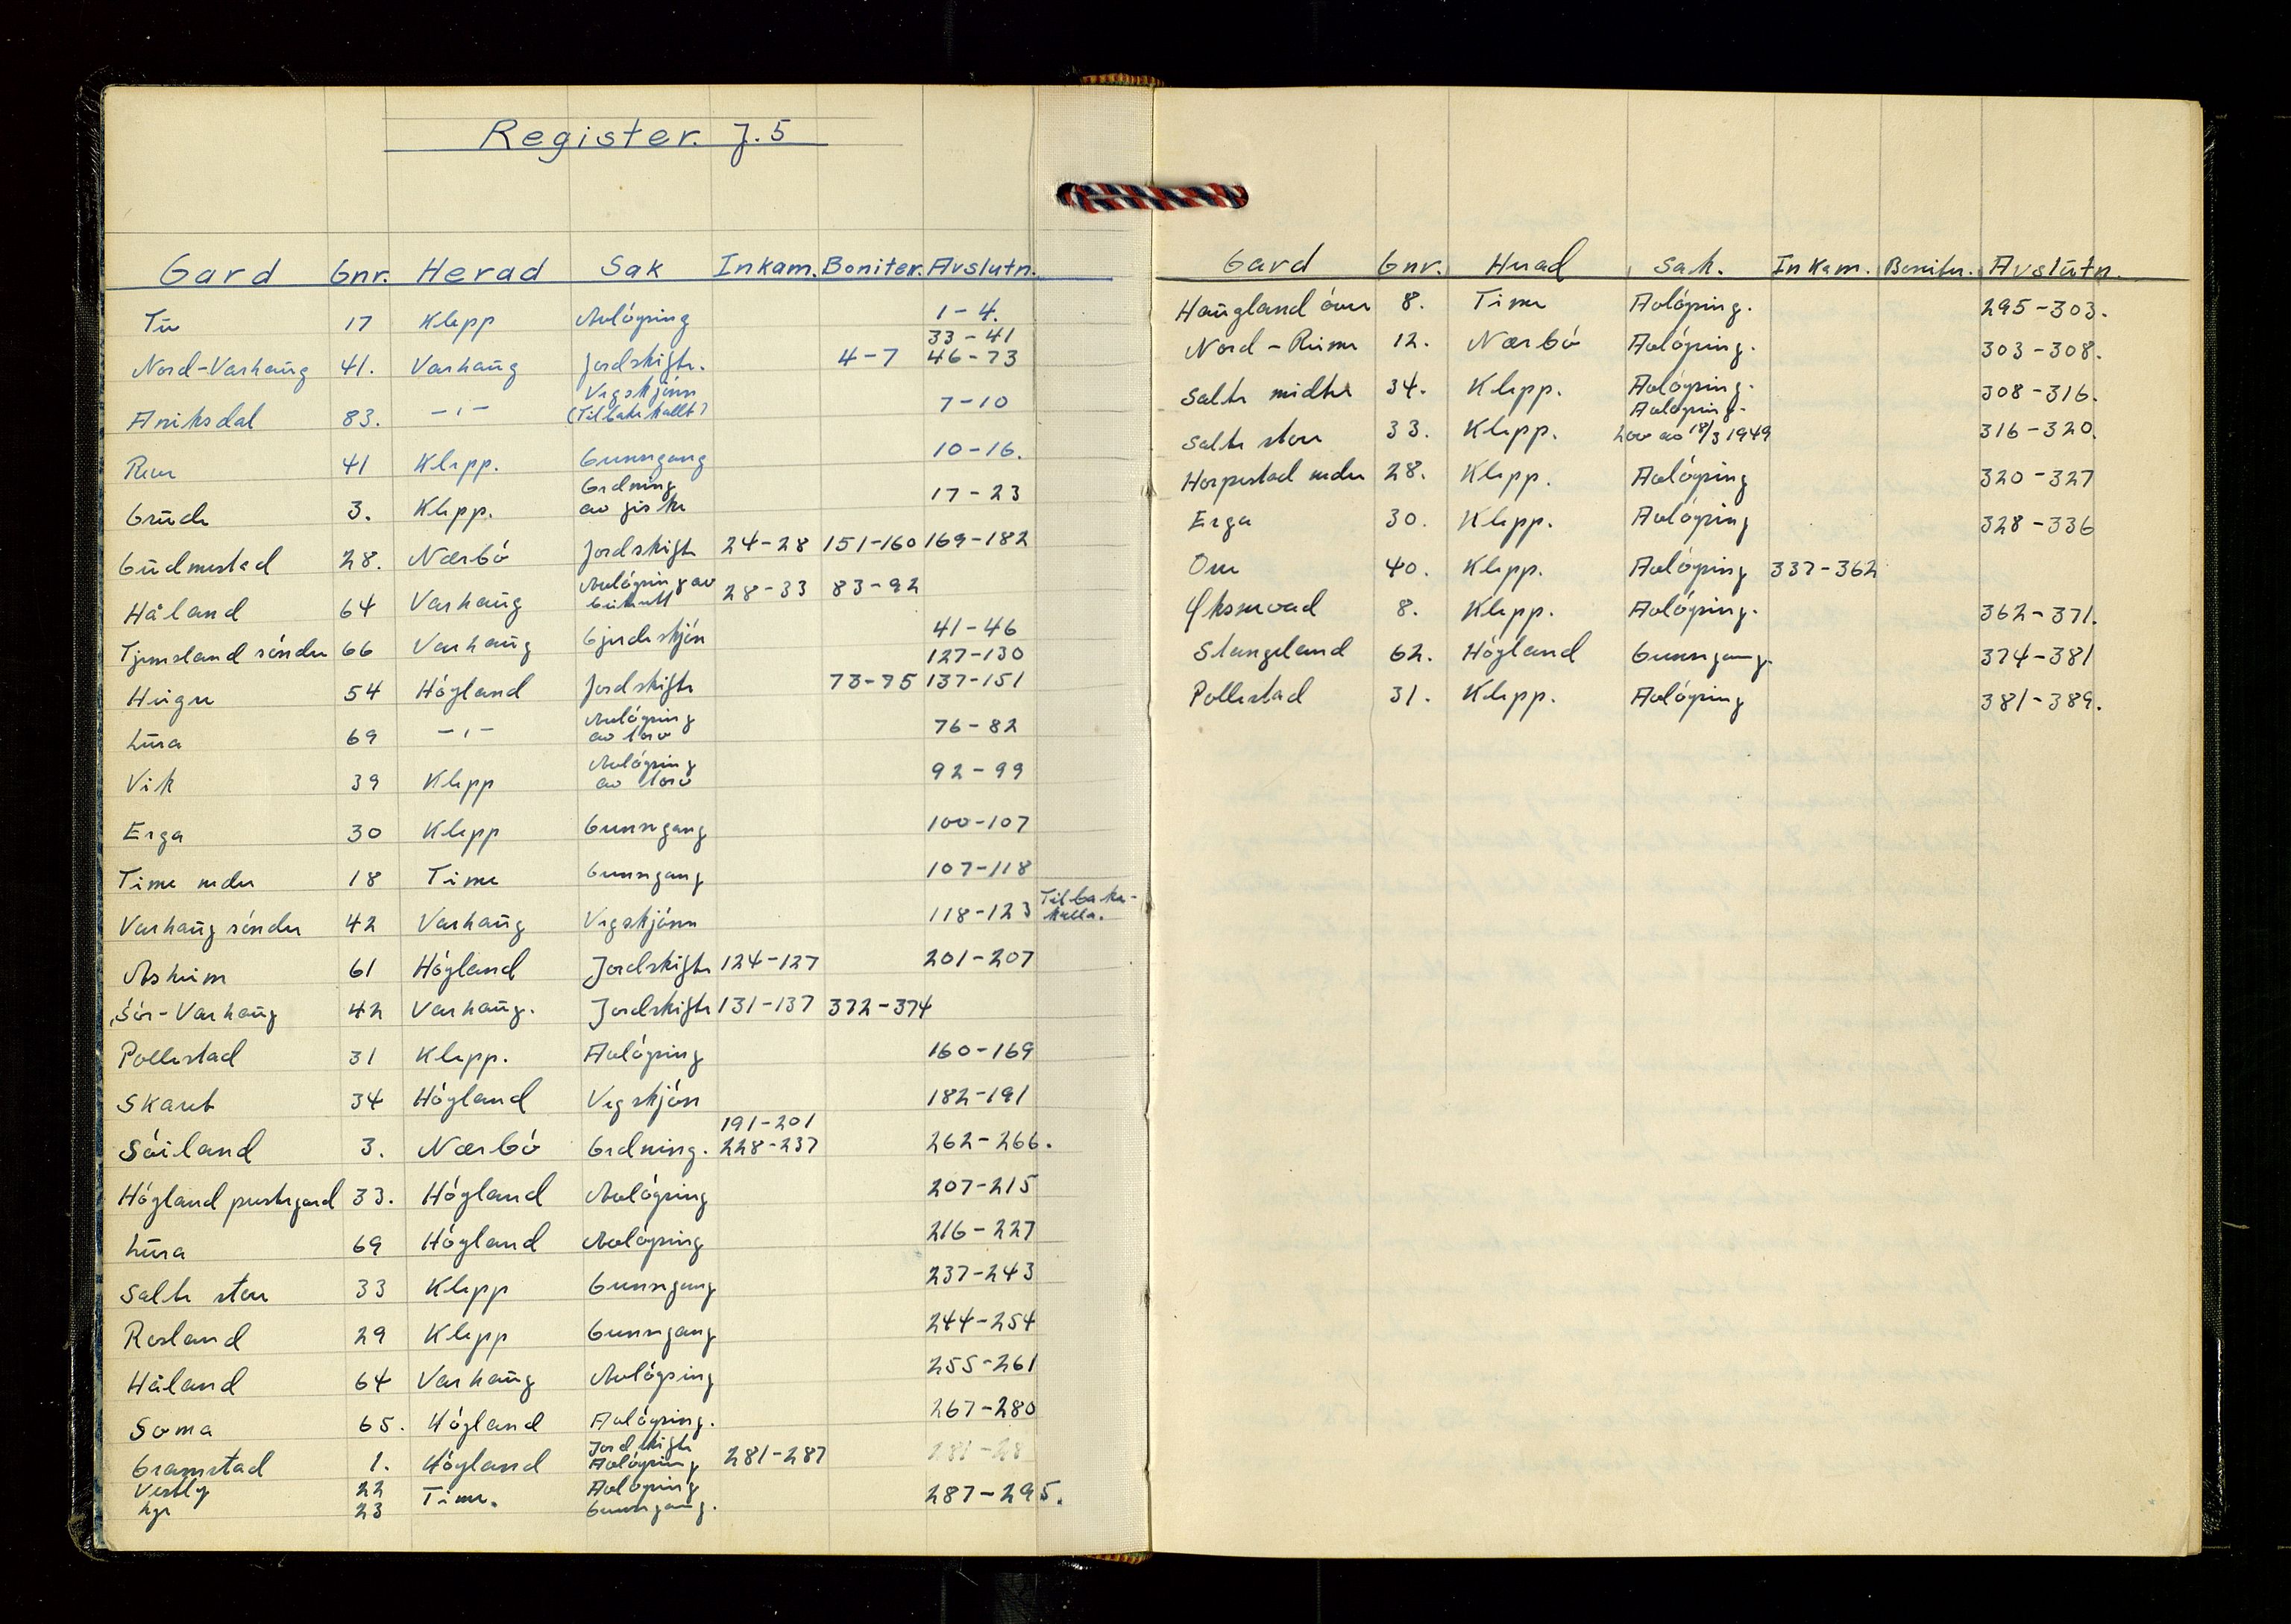 Register. J. 5
Gard Gnr. Herad Sak Inkam. Boniter. Avslutn.
Tu 17 Klepp Avløysing 1-4.
33-41
Nord-Varhaug 41. Varhaug Jordskifte. 4-7 46-73
Aniksdal 83. -"- Vegskjønn (Tilbakekallt) 7-10
Reve 41 Klepp. Grensegang 10-16.
Grude 3. Klepp. Ordning av fiske 17-23
Gudmestad 28. Nærbø Jordskifte 24-28 151-160 169-182
Håland 64 Varhaug Avløysing av beiterett 28-33 83-92
Tjemsland søndre 66 Varhaug Gjerdeskjøn 41-46
127-130
Heigre 54 Høyland Jordskifte 73-75 137-151
Lura 69 -"- Avløysing av torv 76-82
Vik 39 Klepp Avløysing av torv 92-99
Erga 30 Klepp Grensegang 100-107
Time nedre 18 Time Grensegang 107-118
Varhaug søndre 42 Varhaug Vegskjønn 118-123 Tilbaka-kalla.
Asheim 61 Høyland Jordskifte 124-127 201-207
Sør-Varhaug 42 Varhaug. Jordskifte 131-137 372-374
Pollestad 31 Klepp. Avløysing 160-169
Skaret 34 Høyland Vegskjøn 182-191
191-201
Søiland 3. Nærbø Ordning. 228-237 262-266.
Høyland prestegard 33. Høyland Avløysing 207-215
Lura 69 Høyland Avløysing 216-227
Salte store 33 Klepp Grensegang 237-243
Rosland 29 Klepp Grensegang 244-254
Håland 64 Varhaug Avløysing 255-261
Soma 65. Høyland Avløysing. 267-280
Gramstad 1. Høyland Jordskifte Avløysing 281-287 281-28
Vestly 22 Time. Avløysing 287-295.
Lye 23 Grensegang.
Gard Gnr. Herad Sak. Inkam. Boniter. Avslutn.
Haugland øvre 8. Time Avløysing. 295-303.
Nord-Reime 12. Nærbø Avløysing. 303-308.
Salte midtre 34. Klepp. Avløysing. 308-316.
Salte store 33. Klepp. Avløysing. Lov av 18/3 1949 316-320.
Horpestad nedre 28. Klepp. Avløysing 320-327
Erga 30. Klepp. Avløysing 328-336
Orre 40. Klepp. Avløysing 337-362
Øksnevad 8. Klepp. Avløysing. 362-371.
Stangeland 62. Høyland Grensegang. 374-381
Pollestad 31. Klepp. Avløysing 381-389.